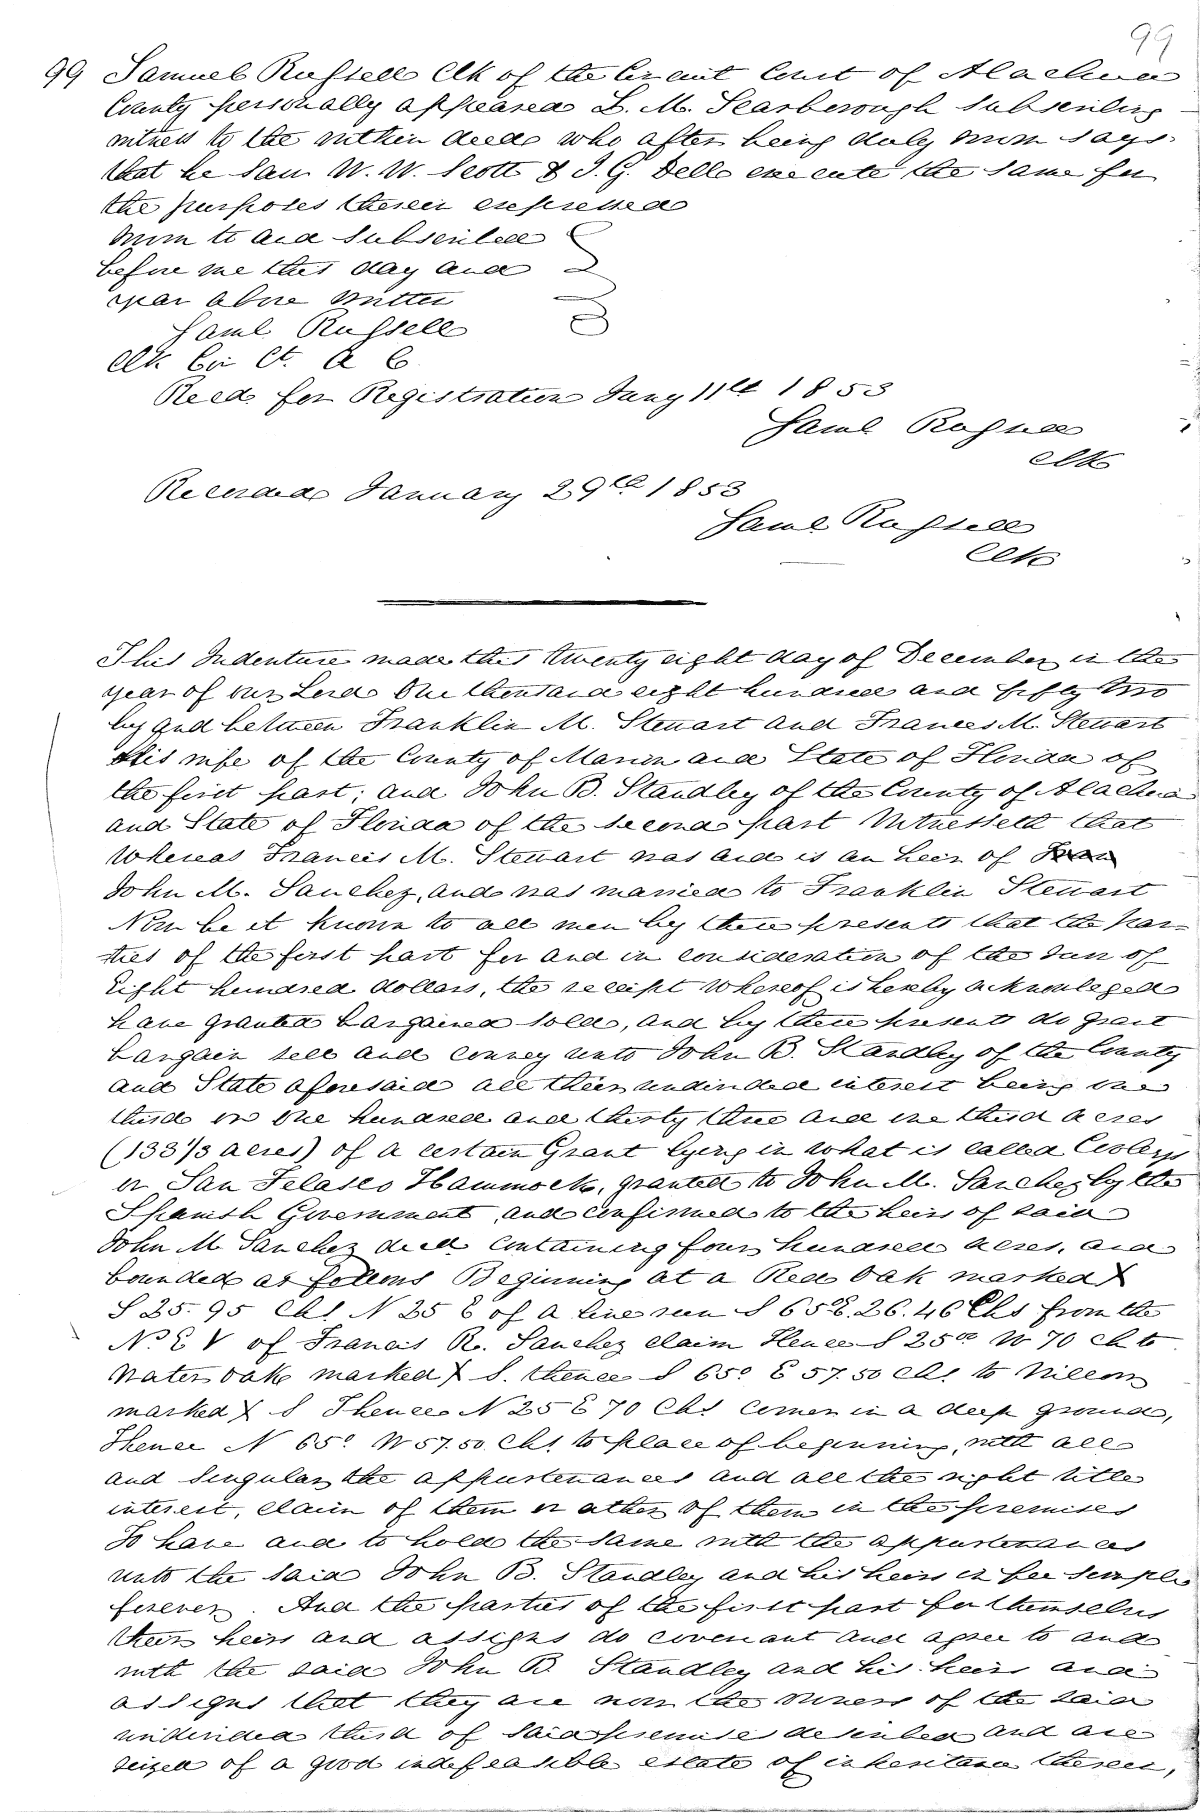 99
99 Samuel Russell Clk of the Circuit Court of Alachua
County personally appeared L. M. Scarborough subscribing
witness to the within deed who after being duly sworn says
that he saw W. W. Scott & J. G. Dell execute the same for
the purposes therein expressed
Sworn to and subscribed
before me this day and
year above written
Saml Russell
Clk Cir Ct. A C
Recd for Registration Jany 11th 1853
Saml Russell
Clk
Recorded January 29th 1853
Saml Russell
Clk
This Indenture made this twenty eight day of December in the
year of our Lord One thousand eight hundred and fifty two
by and between Franklin M. Stewart and Frances M. Stewart
His wife of the County of Marion and State of Florida of
the first part; and John B. Standley of the County of Alachua
and State of Florida of the second part Witnesseth that
Whereas Francis M. Stewart was and is an heir of
John M. Sanchez, and was married to Franklin Stewart
Now be it known to all men by these presents that the par-
ties of the first part for and in consideration of the sum of
Eight hundred dollars, the receipt whereof is hereby acknowleged
have granted bargained sold, and by these presents do grant
bargain sell and convey unto John B. Standley of the County
and State aforesaid all their undivided interest being one
third or One hundred and thirty three and one third acres
(133 1/3 acres) of a certain Grant lying in what is called
or San Felasco Hammock, granted to John M. Sanchez by the
Spanish Government, and confirmed to the heirs of said
John M Sanchez decd containing four hundred acres, and
bounded as follows Beginning at a Red Oak marked X
S 25.95 Chs N 25 E of a line run S 65 E. 26.46 Chs from the
No E V of Francis R. Sanchez claim Thence S 25° W 70 ch to
Water oak marked X S. thence S 65° E 57.50 Chs. to
marked X S Thence N 25 E 70 Chs corner in a deep ground,
Thence N 65° W 57.50 Chs. to place of beginning, with all
and singular the appurtenances and all the right title
interest, claim of them or ather of them in the premises
To have and to hold the same with the appurtenances
unto the said John B. Standley and his heirs in fee simple
forever. And the parties of the first part for themselves
their heirs and assigns do covenant and agree to and
with the said John B. Standley and his heirs and
assigns that they are now the owners of the said
undivided third of said premises described and are
seized of a good indefeasible estate of inheritance therein,